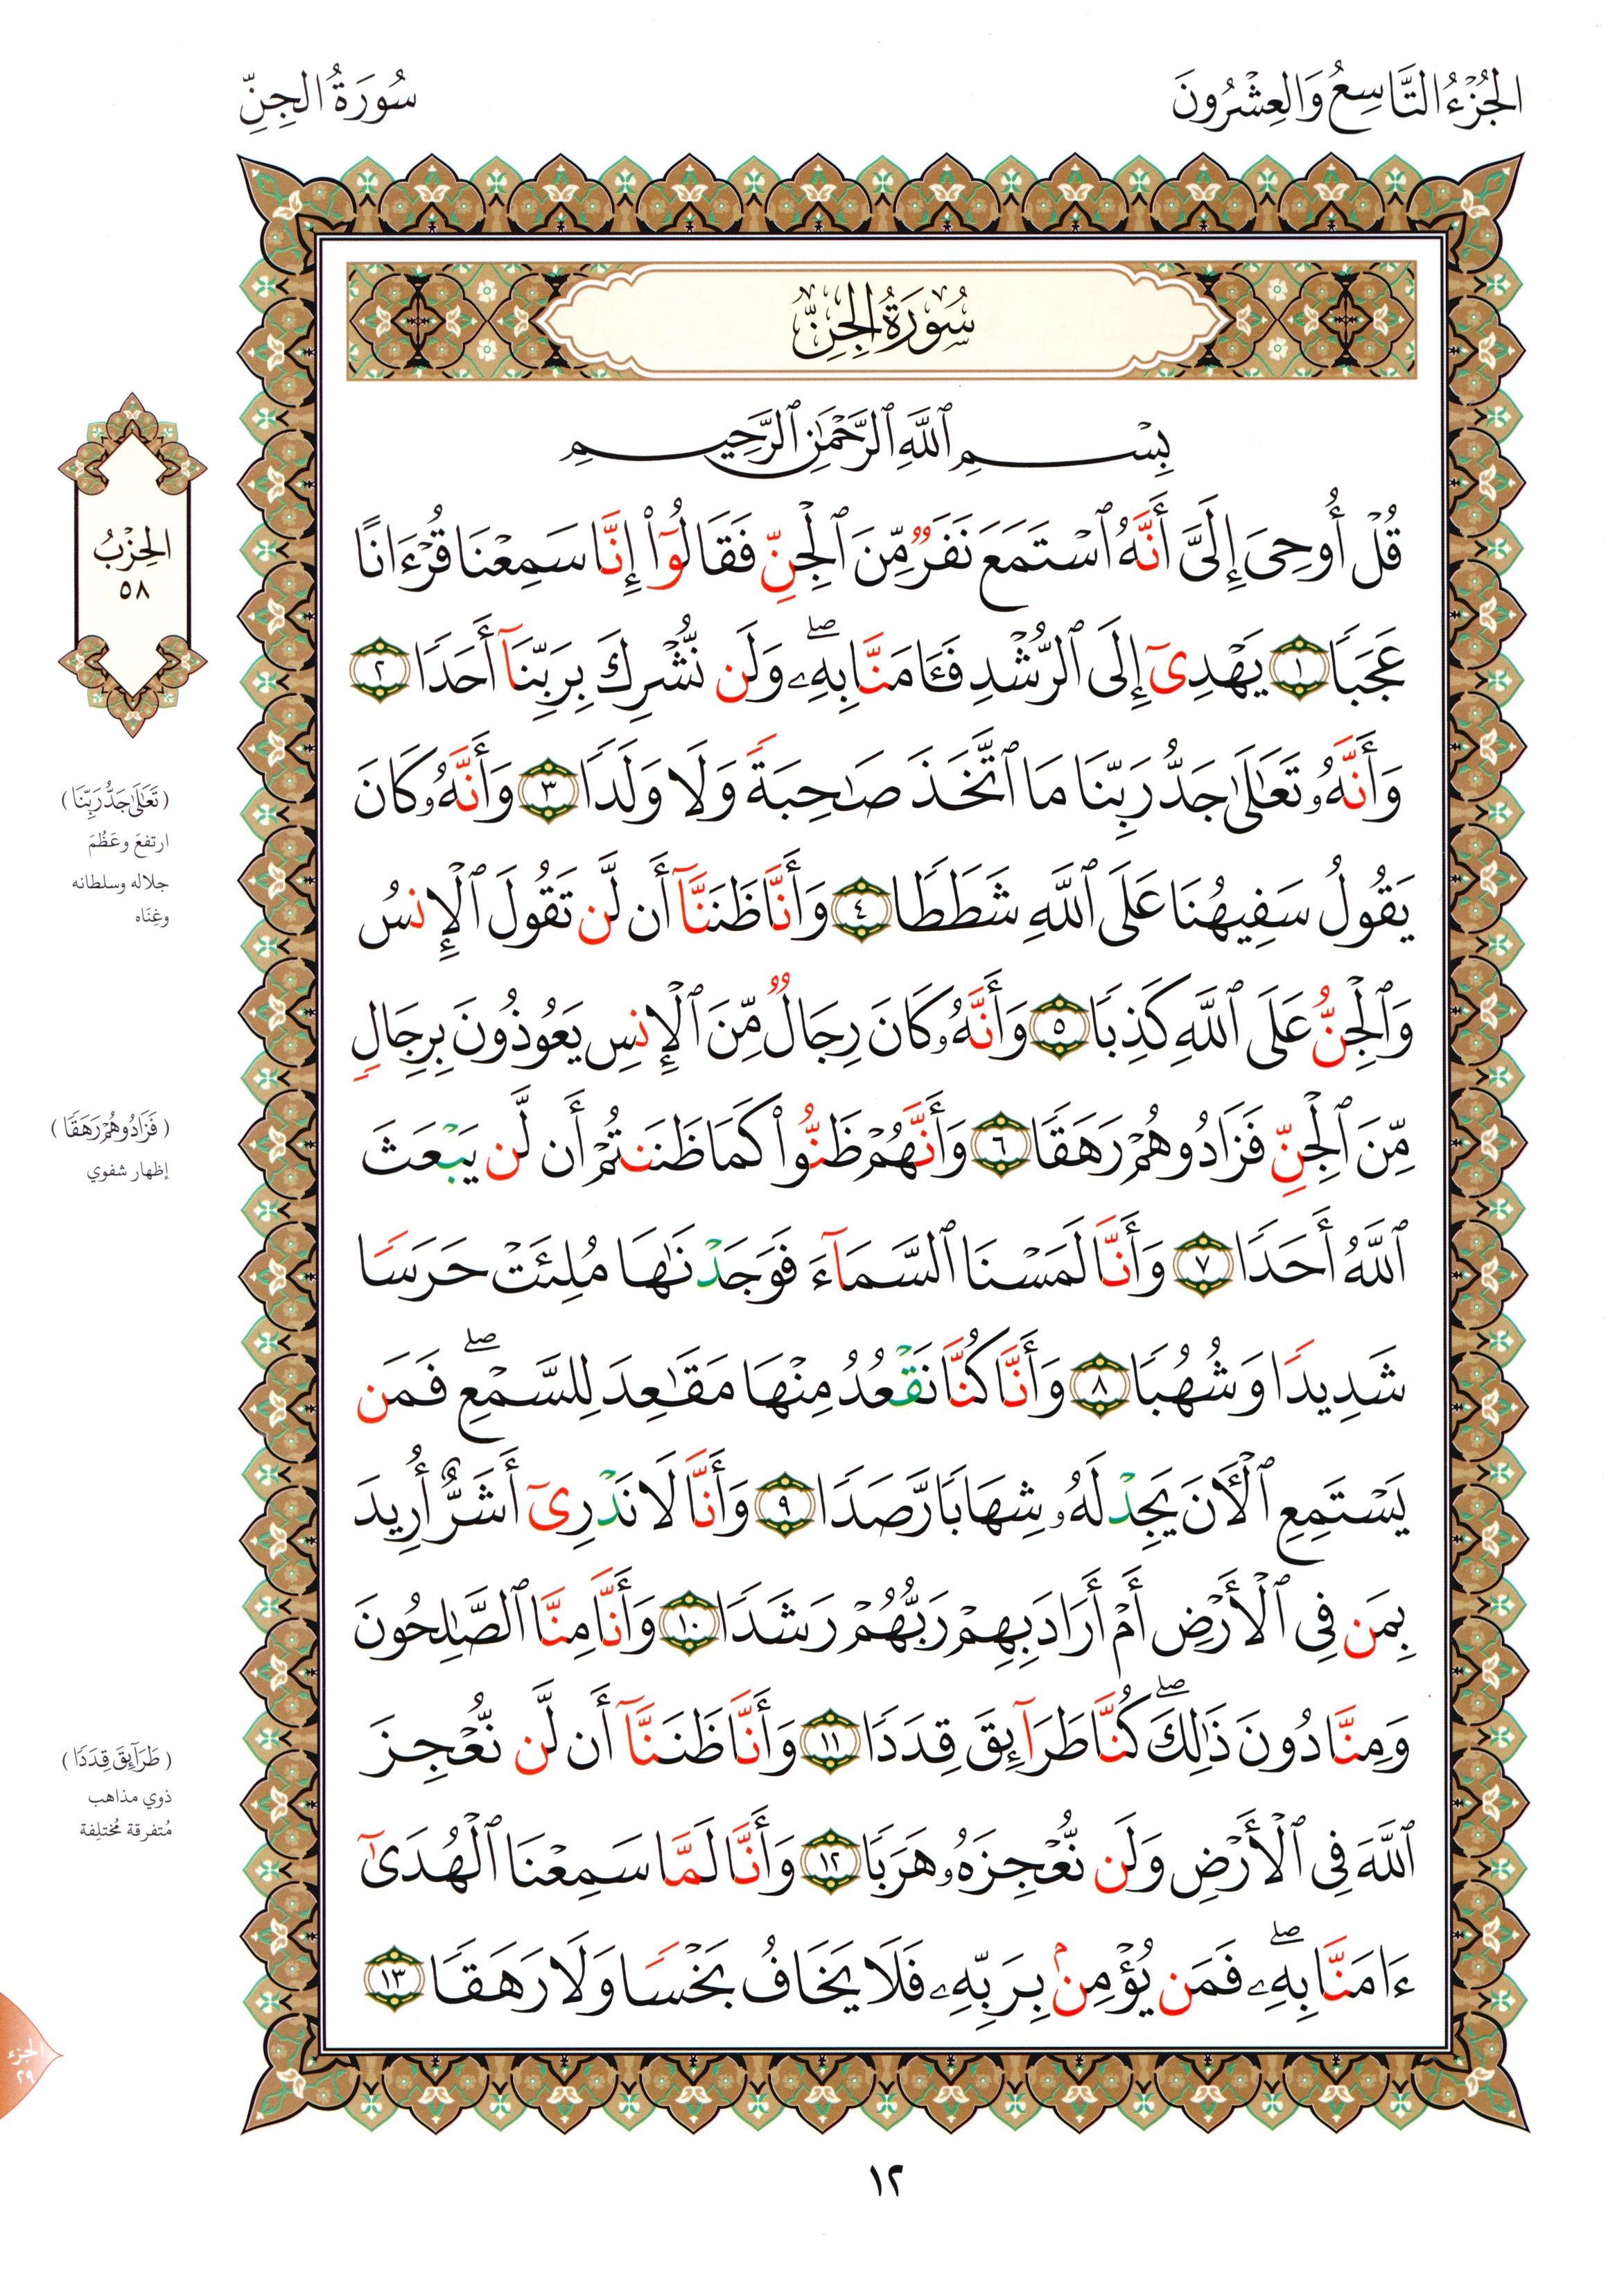 الجُزْءُ التَّاسِعُ وَالعِشْرُونَ
سُورَةُ الجِنِّ
سُورَةُ الجِنِّ
بِسْمِ ٱللَّهِ ٱلرَّحْمَٰنِ ٱلرَّحِيمِ
قُلْ أُوحِىَ إِلَىَّ أَنَّهُ ٱسْتَمَعَ نَفَرٌ مِّنَ ٱلْجِنِّ فَقَالُوٓا۟ إِنَّا سَمِعْنَا قُرْءَانًا
عَجَبًا ١ يَهْدِىٓ إِلَى ٱلرُّشْدِ فَـَٔامَنَّا بِهِۦ ۖ وَلَن نُّشْرِكَ بِرَبِّنَآ أَحَدًا ٢
وَأَنَّهُۥ تَعَٰلَىٰ جَدُّ رَبِّنَا مَا ٱتَّخَذَ صَٰحِبَةً وَلَا وَلَدًا ٣ وَأَنَّهُۥ كَانَ
يَقُولُ سَفِيهُنَا عَلَى ٱللَّهِ شَطَطًا ٤ وَأَنَّا ظَنَنَّآ أَن لَّن تَقُولَ ٱلْإِنسُ
وَٱلْجِنُّ عَلَى ٱللَّهِ كَذِبًا ٥ وَأَنَّهُۥ كَانَ رِجَالٌ مِّنَ ٱلْإِنسِ يَعُوذُونَ بِرِجَالٍ
مِّنَ ٱلْجِنِّ فَزَادُوهُمْ رَهَقًا ٦ وَأَنَّهُمْ ظَنُّوا۟ كَمَا ظَنَنتُمْ أَن لَّن يَبْعَثَ
ٱللَّهُ أَحَدًا ٧ وَأَنَّا لَمَسْنَا ٱلسَّمَآءَ فَوَجَدْنَٰهَا مُلِئَتْ حَرَسًا
شَدِيدًا وَشُهُبًا ٨ وَأَنَّا كُنَّا نَقْعُدُ مِنْهَا مَقَٰعِدَ لِلسَّمْعِ ۖ فَمَن
يَسْتَمِعِ ٱلْـَٔانَ يَجِدْ لَهُۥ شِهَابًا رَّصَدًا ٩ وَأَنَّا لَا نَدْرِىٓ أَشَرٌّ أُرِيدَ
بِمَن فِى ٱلْأَرْضِ أَمْ أَرَادَ بِهِمْ رَبُّهُمْ رَشَدًا ١٠ وَأَنَّا مِنَّا ٱلصَّٰلِحُونَ
وَمِنَّا دُونَ ذَٰلِكَ ۖ كُنَّا طَرَآئِقَ قِدَدًا ١١ وَأَنَّا ظَنَنَّآ أَن لَّن نُّعْجِزَ
ٱللَّهَ فِى ٱلْأَرْضِ وَلَن نُّعْجِزَهُۥ هَرَبًا ١٢ وَأَنَّا لَمَّا سَمِعْنَا ٱلْهُدَىٰٓ
ءَامَنَّا بِهِۦ ۖ فَمَن يُؤْمِنۢ بِرَبِّهِۦ فَلَا يَخَافُ بَخْسًا وَلَا رَهَقًا ١٣
الحِزْبُ
٥٨
(تَعَٰلَىٰ جَدُّ رَبِّنَا)
ارتفعَ وعَظُمَ
جلاله وسلطانه
وغِنَاه
(فَزَادُوهُمْ رَهَقًا)
إظهار شفوي
(طَرَآئِقَ قِدَدًا)
ذوي مذاهب
مُتفرقة مُختلِفة
الجزء
٢٩
١٢